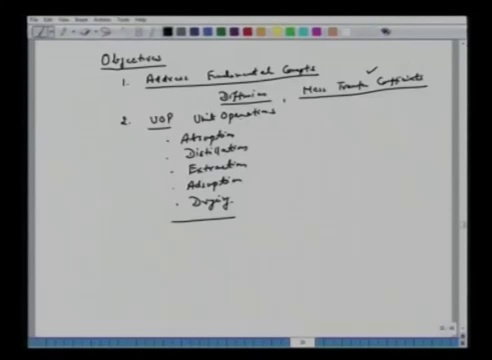 Objectives
1. Address Fundamental Concepts
Diffusion, Mass Transfer Coefficients
2. UOP Unit Operations
. Absorption
. Distillation
. Extraction
. Adsorption
. Drying.